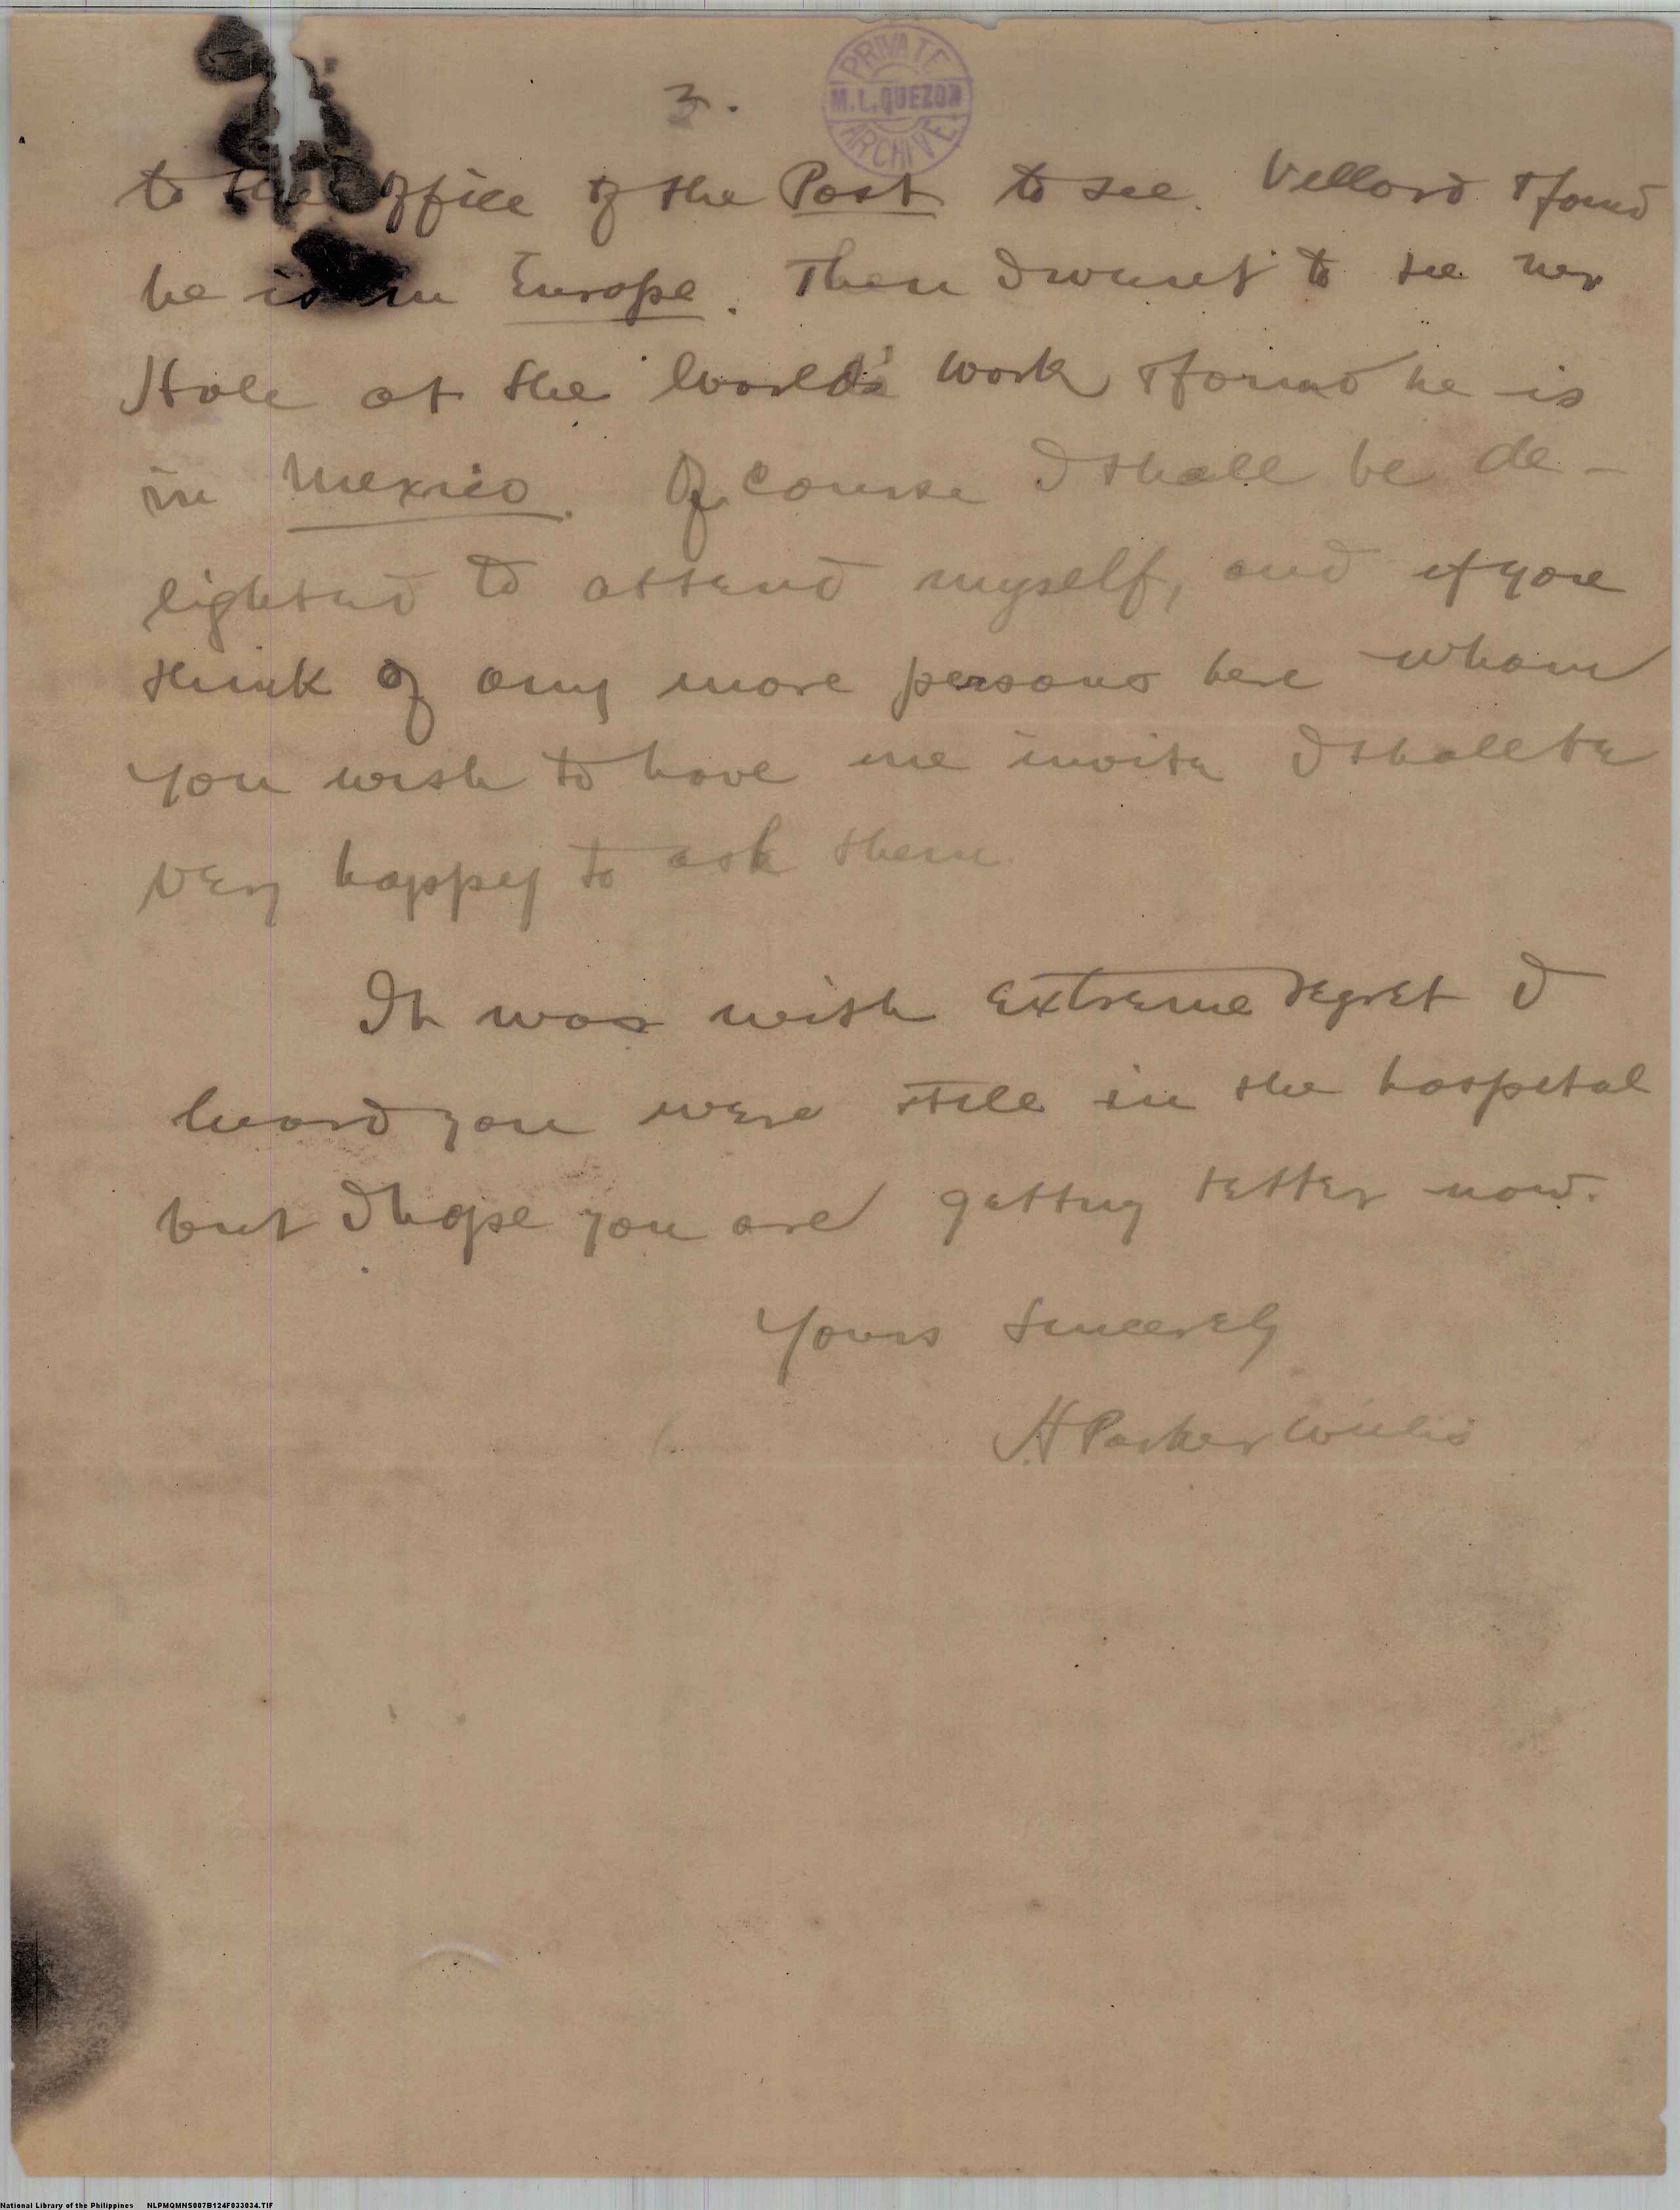 3.
PRIVATE
M.L.QUEZON
ARCHIVE
to the office of the Post to see Villard & found
he is in Europe. Then I went to see Mr
Hale at the World's Work & found he is
in Mexico. Of course I shall be de-
lighted to attend myself, and if you
think of any more persons here whom
you wish to have me invite I shall be
very happy to ask them.
It was with extreme regret I
heard you were still in the hospital
but I hope you are getting better now.
Yours Sincerely
H Parker Willis
National Library of the Philippines NLPMQMNS007B124F033034.TIF